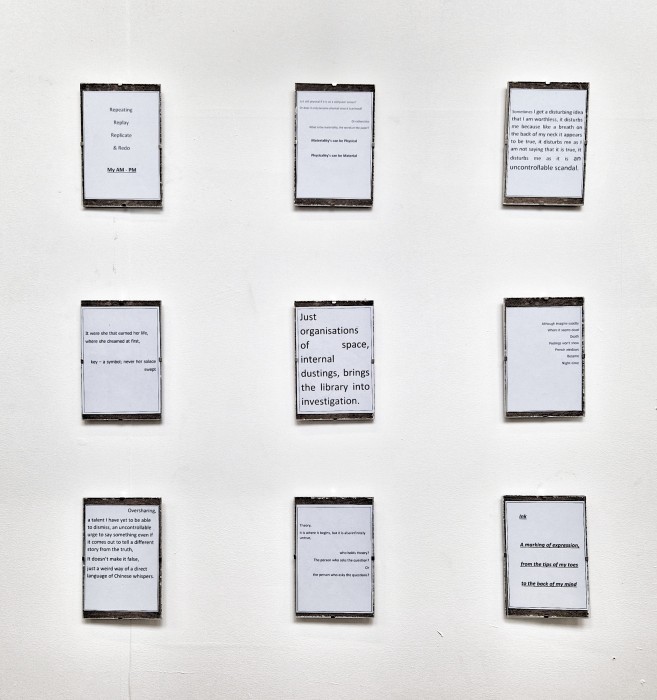 Repeating
Replay
Replicate
& Redo
My AM - PM
Materiality's can be Physical
Physicality's can be Material
Sometimes I get a disturbing idea
that I am worthless, it disturbs
me because like a breath on
the back of my neck it appears
to be true, it disturbs me as I
am not saying that it is true, it
disturbs me as it is an
uncontrollable scandal.
It were she that earned her life,
where she dreamed at first,
key – a symbol, never her solace
swept
Just
organisations
of space,
internal
dustings, brings
the library into
investigation.
Although imagine reality
When it seems most
Death
Feelings won't show
Person
Become
Night time
Oversharing,
a talent I have yet to be able
to dismiss, an uncontrollable
urge to say something even if
it comes out to tell a different
story from the truth,
It doesn't make it false,
just a weird way of a direct
language of Chinese whispers.
Theory,
it is where it begins, but it is also
who holds theory?
The person who asks the question?
Or
the person who asks the questions?
Ink
A marking of expression,
from the tips of my toes
to the back of my mind